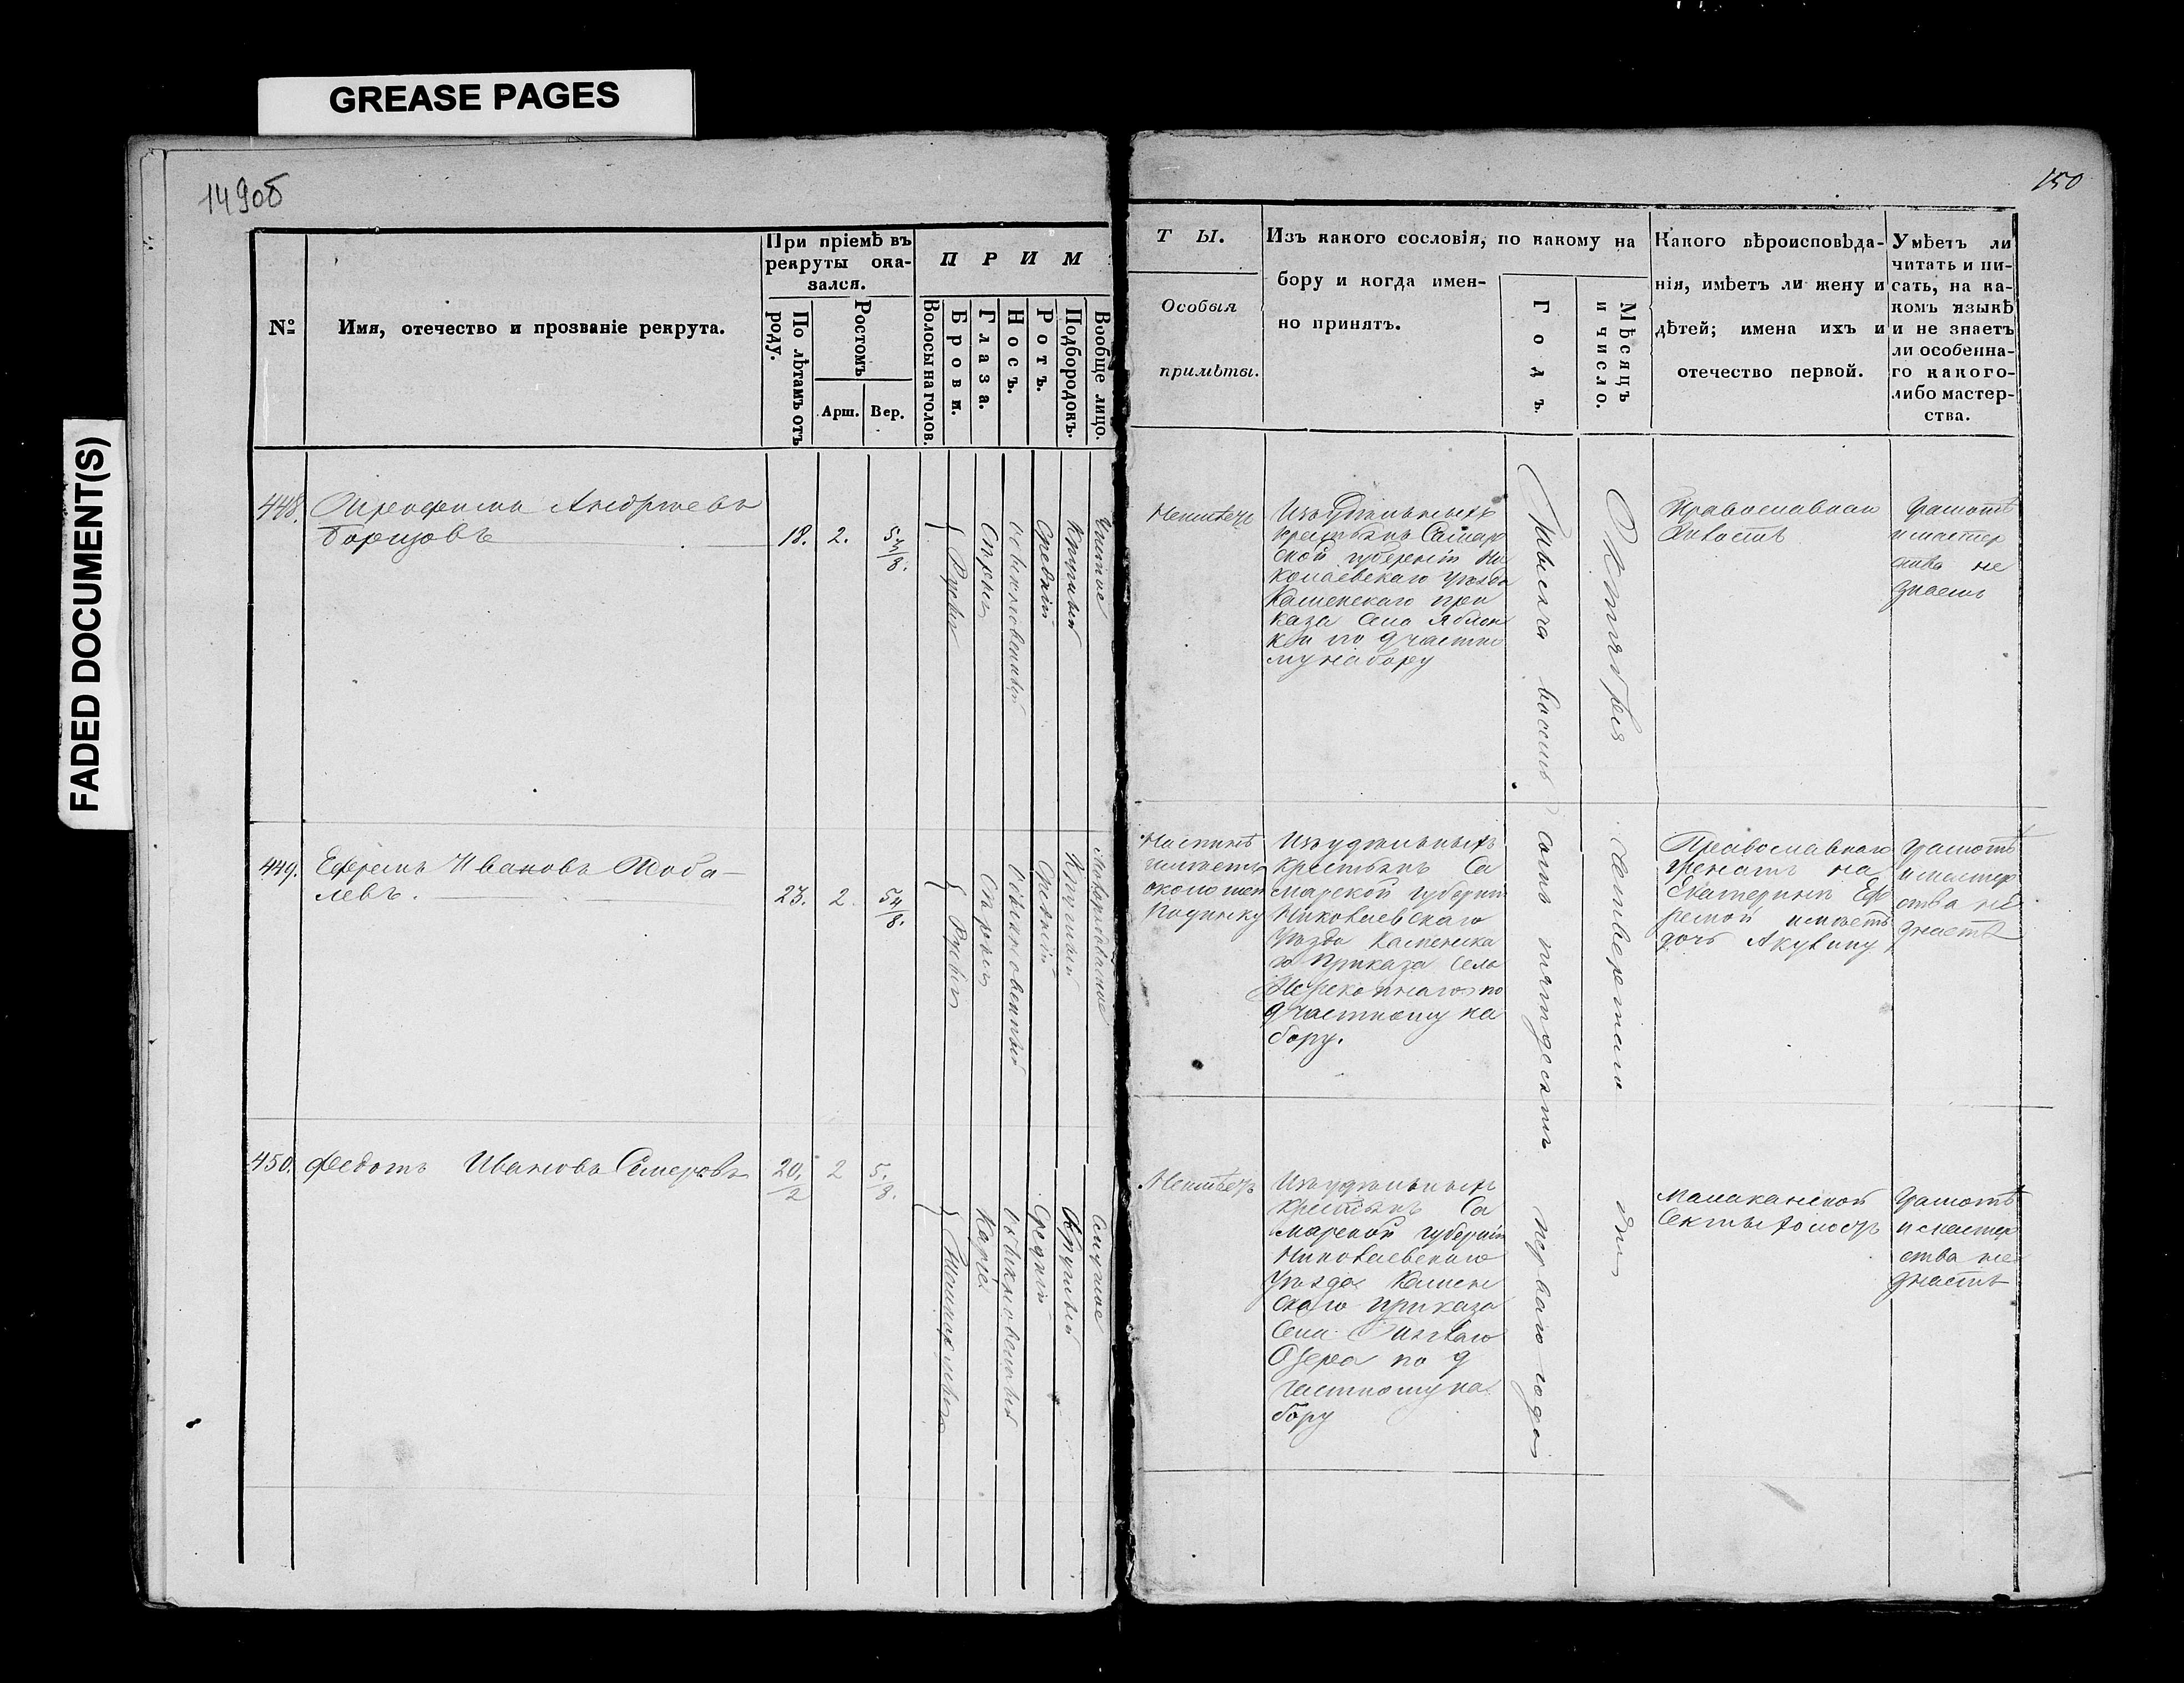 GREASE PAGES
FADED DOCUMENT(S)
149об
150
№
Имя, отечество и прозваніе рекрута.
При пріемѣ въ
рекруты ока-
зался.
По лѣтамъ отъ
роду.
Ростомъ
Арш.
Вер.
П Р И М
Волосы на голов.
Брови.
Глаза.
Носъ.
Ротъ.
Подбородокъ.
Вообще лицо.
Т Ы.
Особыя
примѣты.
Изъ какого сословія, по какому на
бору и когда имен-
но принятъ.
Годъ.
Мѣсяцъ
и число.
Какого вѣроисповѣда-
нія, имѣетъ ли жену и
дѣтей; имена ихъ и
отечество первой.
Умѣетъ ли
читать и пи-
сать, на ка-
комъ языкѣ
и не знаетъ
ли особенна-
го какого-
либо мастер-
ства.
448.
Андреевъ
Борисовъ
18. 2. 5 4/8.
Русые
Сѣрые
обыкновенный
Средній
Круглый
Чистое
Неимѣетъ
Изъ Удѣльныхъ
крестьянъ Самар
ской губерніи Ни
колаевскаго уѣзда
Каменскаго при
каза Села Яблон
ки по 9 частно
му набору
Тысяча восемь сотъ пятдесятъ перваго года
Октября четвертаго дня
Православнаго
Холостъ
Грамотѣ
и мастер
ства не
знаетъ
449.
Ефремъ Ивановъ Жоба-
левъ.
23. 2. 5 4/8.
Русые
Сѣрые
Обыкновенный
Средній
Круглый
Наспинѣ
имѣетъ
Родинку
Изъ удѣльныхъ
крестьянъ Са
марской губерніи
Николаевскаго
Уѣзда Каменска
го Приказа Села
Перекопнаго по
9 частному на
бору.
Православнаго
женатъ на
Екатеринѣ Еф
ремой имѣетъ
дочь Акулину
Грамотѣ
и мастер
ства не
знаетъ
450.
Федотъ Ивановъ
20. 1/2 2 5. /8.
Темнорусые
Карые
Обыкновенный
Средній
Круглый
Смуглое
Неимѣетъ
Изъ удѣльныхъ
крестьянъ Са
марской губерніи
Николаевскаго
Уѣзда Камен
скаго приказа
Села
Озера по 9
частному на
бору
Малаканской
Секты холостъ
Грамотѣ
и мастер
ства не
знаетъ